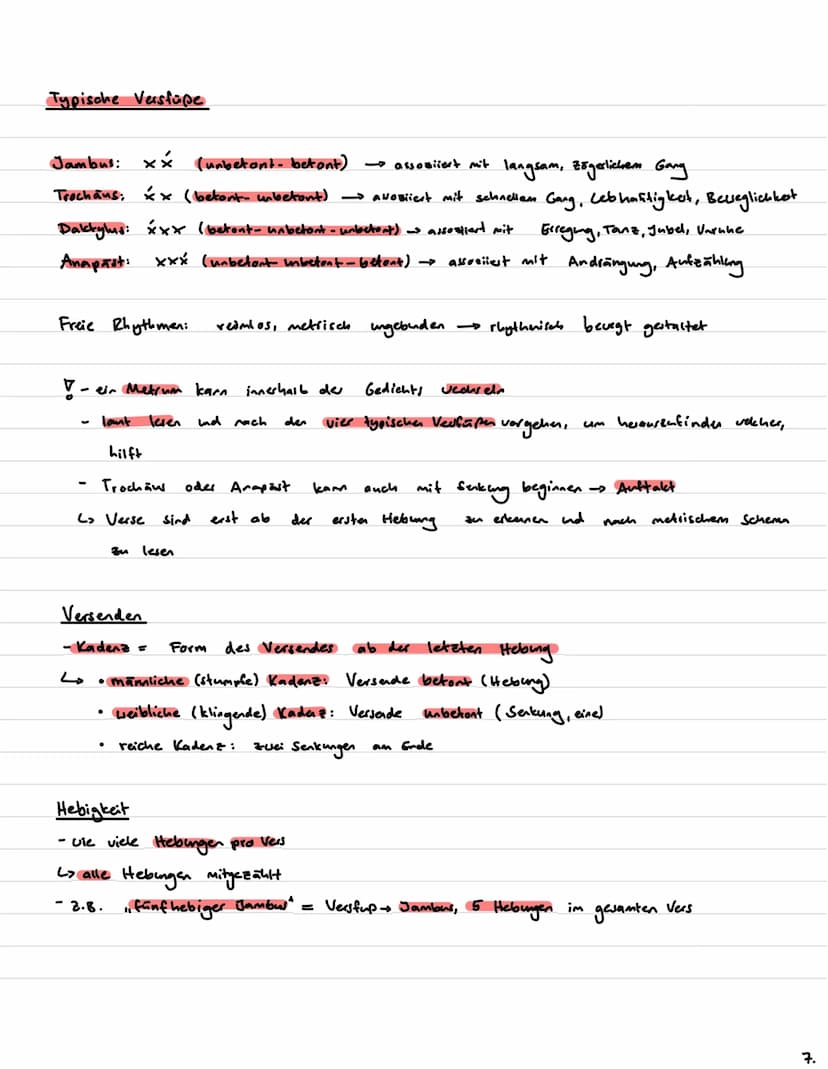 Typische Versfüße
Jambus: xx́ (unbetont-betont) → assoziiert mit langsam, zögerlichem Gang
Trochäus: x́x (betont-unbetont) → assoziiert mit schnellem Gang, Lebhaftigkeit, Beweglichkeit
Daktylus: x́xx (betont-unbetont-unbetont) → assoziiert mit Erregung, Tanz, Jubel, Unruhe
Anapäst: xxx́ (unbetont-unbetont-betont) → assoziiert mit Andrängung, Aufzählung
Freie Rhythmen: reimlos, metrisch ungebunden → rhythmisch bewegt gestaltet
! - ein Metrum kann innerhalb des Gedichts wechseln
- laut lesen und nach den vier typischen Versfüßen vorgehen, um herauszufinden welcher,
hilft
- Trochäus oder Anapäst kann auch mit Senkung beginnen → Auftakt
↳ Verse sind erst ab der ersten Hebung zu erkennen und nach metrischem Schema
zu lesen
Versenden
- Kadenz = Form des Versendes ab der letzten Hebung
↳ • männliche (stumpfe) Kadenz: Versende betont (Hebung)
• weibliche (klingende) Kadenz: Versende unbetont (Senkung, eine)
• reiche Kadenz: zwei Senkungen am Ende
Hebigkeit
- wie viele Hebungen pro Vers
↳ alle Hebungen mitgezählt
- z.B. „fünfhebiger Jambus“ = Versfuß → Jambus, 5 Hebungen im gesamten Vers
7.